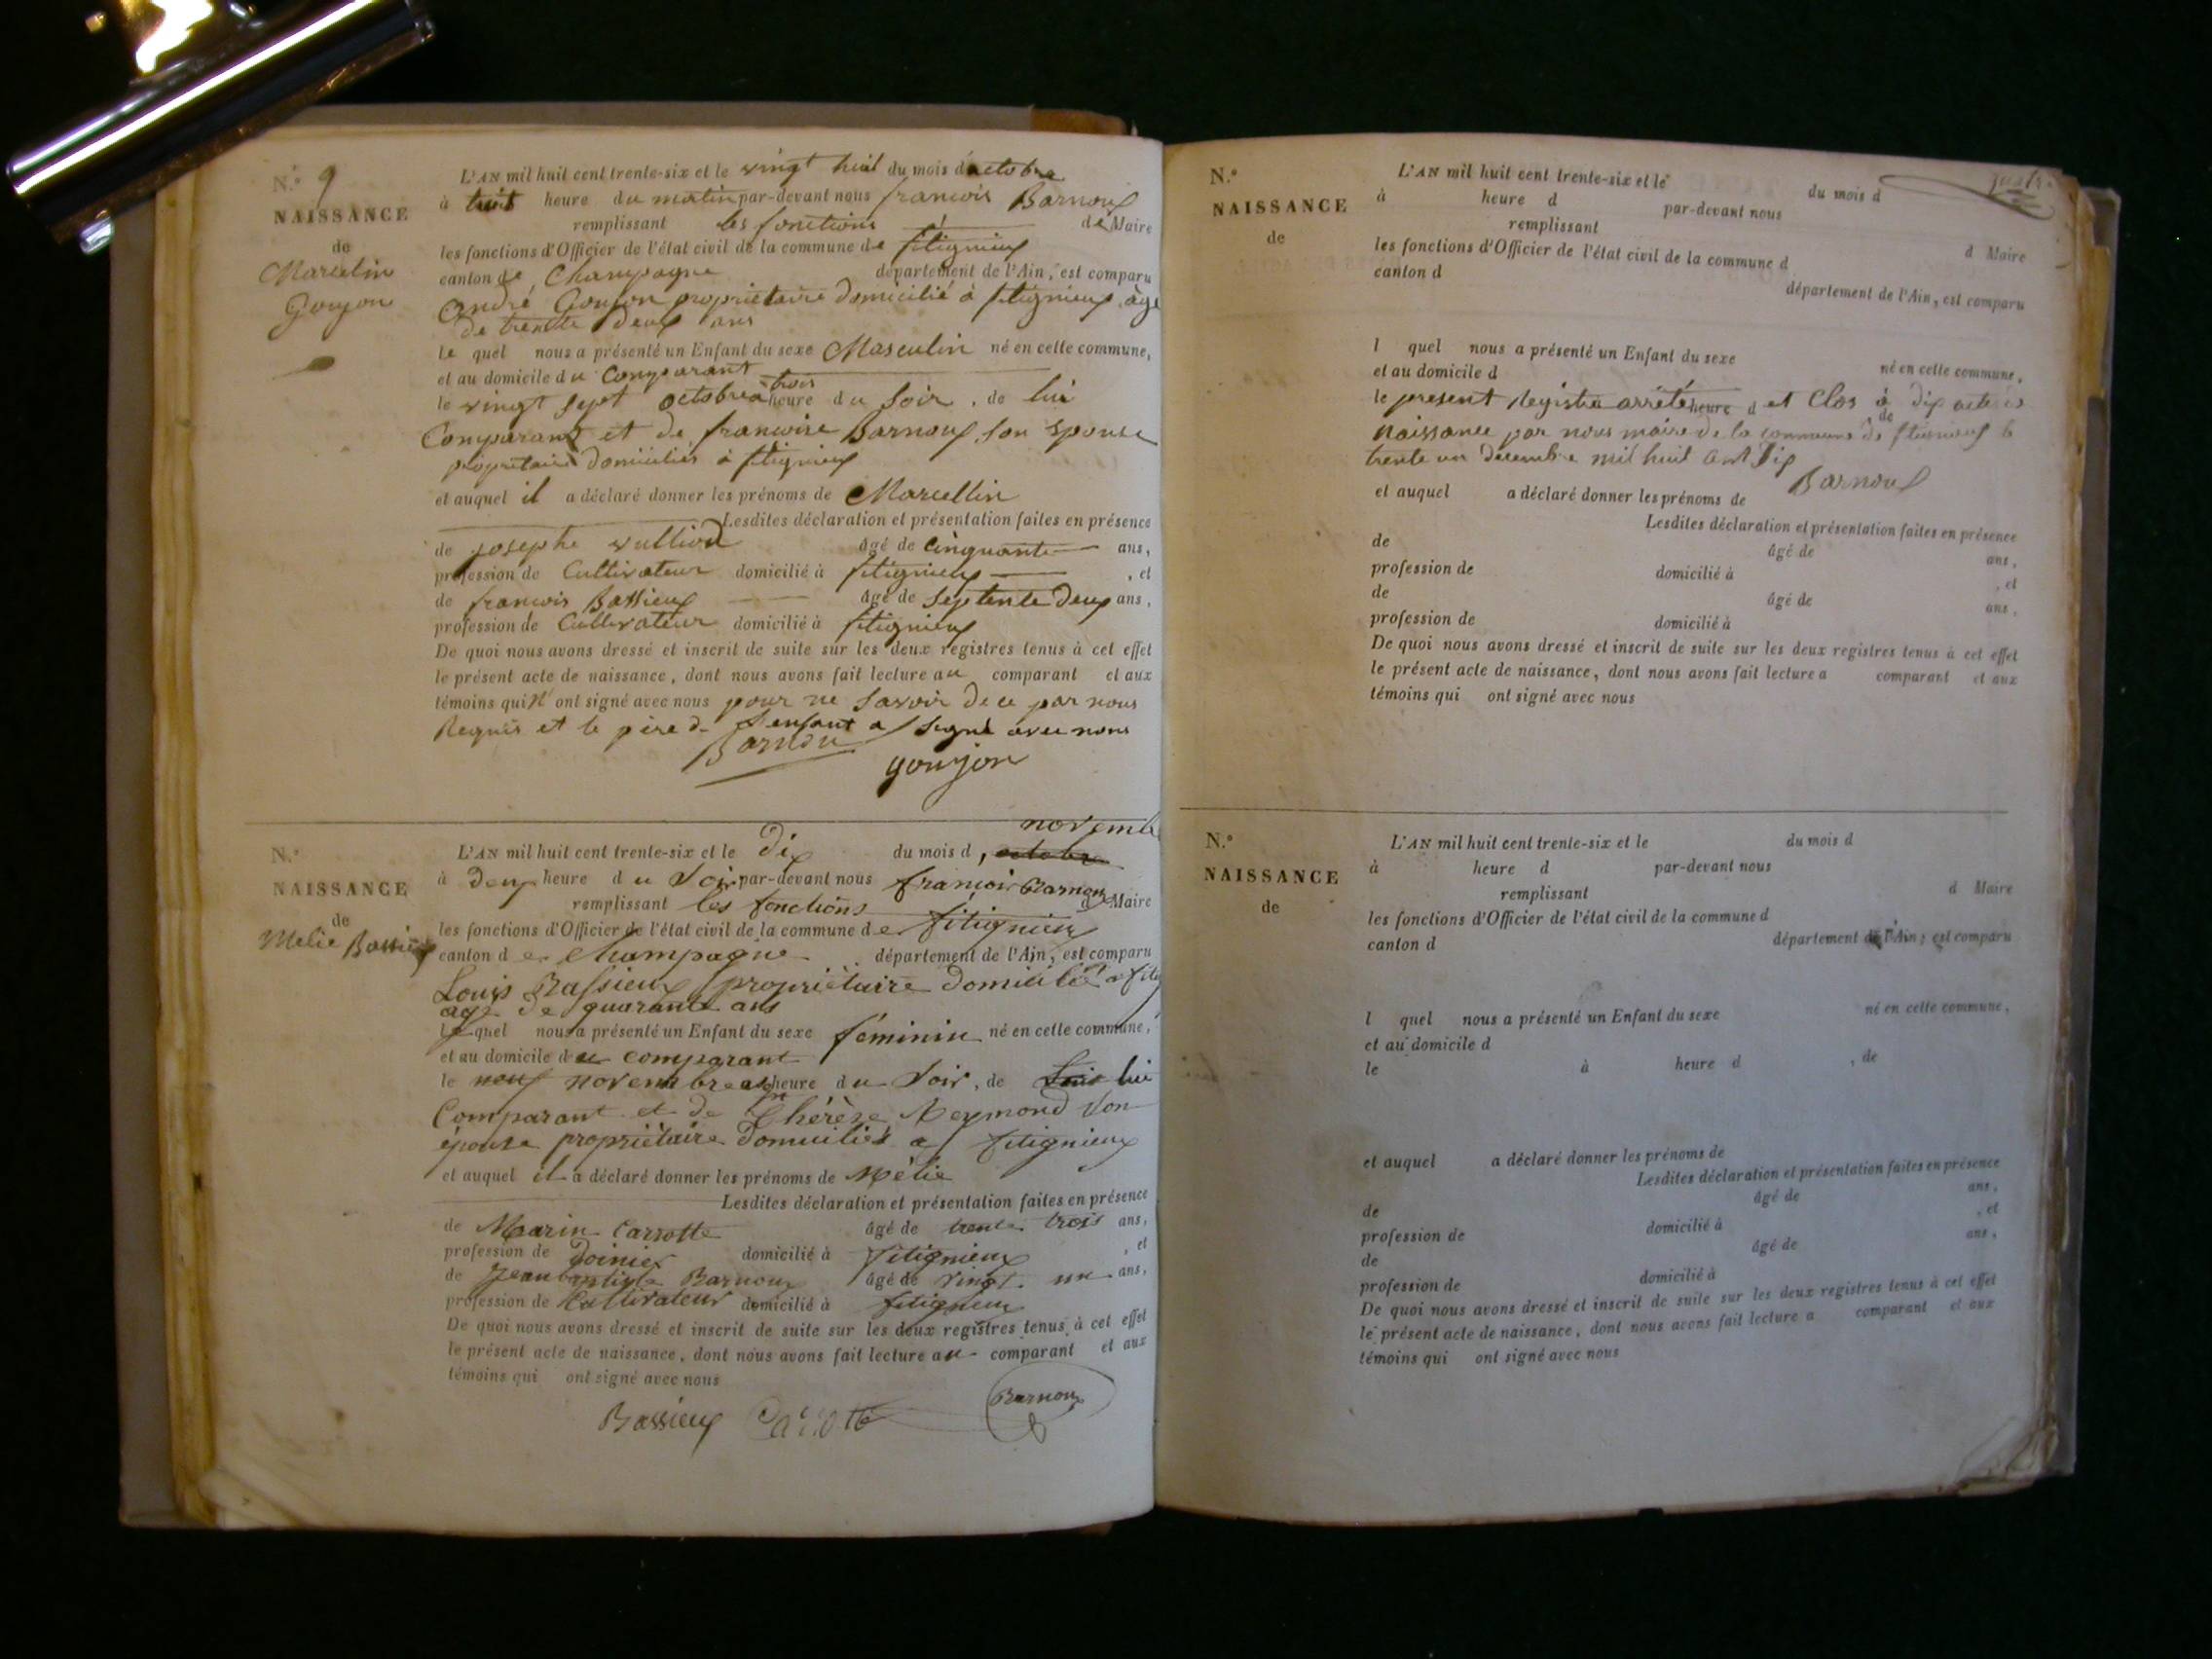 N.º 9
NAISSANCE
de
Marcelin
Goujon
L'AN mil huit cent trente-six et le vingt huit du mois d'octobre
à heure du matin par-devant nous francois Barnoux
remplissant les fonctions de Maire
les fonctions d'Officier de l'état civil de la commune de fitignieux
canton de Champagne département de l'Ain, est comparu
André Goujon propriétaire domicilié à fitignieux, âgé
de trente deux ans
le quel nous a présenté un Enfant du sexe Masculin né en cette commune,
et au domicile du Comparant
le vingt sept octobre à trois heure du Soir, de lui
Comparant et de francoise Barnoux son épouse
propriétaire domiciliés à fitignieux
et auquel il a déclaré donner les prénoms de Marcellin
Lesdites déclaration et présentation faites en présence
de josephe vulliod âgé de Cinquante ans,
profession de Cultivateur domicilié à fitignieux , et
de francois Bassieux âgé de septente deux ans,
profession de Cultivateur domicilié à fitignieux
De quoi nous avons dressé et inscrit de suite sur les deux registres tenus à cet effet
le présent acte de naissance, dont nous avons fait lecture au comparant et aux
témoins qui n'ont signé avec nous pour ne savoir de ce par nous
Requis et le père de l'enfant a signé avec nous
Barnou
goujon
N.º
NAISSANCE
de
Melie Bassieux
novemb
L'AN mil huit cent trente-six et le dix du mois d, octobre
à deux heure du Soir par-devant nous francois Barnoux
remplissant les fonctions d Maire
les fonctions d'Officier de l'état civil de la commune de fitignieux
canton de Champagne département de l'Ain, est comparu
Louis Bassieux propriétaire domicilié a fitig
agé de quarante ans
le quel nous a présenté un Enfant du sexe féminin né en cette commune,
et au domicile du comparant
le neuf novembre a heure du Soir, de lui
Comparant et de Thérèse Reymond son
épouse propriétaire domiciliés a fitignieux
et auquel il a déclaré donner les prénoms de Mélie
Lesdites déclaration et présentation faites en présence
de Marin Carrotte âgé de trente trois ans,
profession de domicilié à fitignieux , et
de jean baptiste Barnoux âgé de vingt un ans,
profession de Cultivateur domicilié à fitignieux
De quoi nous avons dressé et inscrit de suite sur les deux registres tenus à cet effet
le présent acte de naissance, dont nous avons fait lecture au comparant et aux
témoins qui ont signé avec nous
Bassieux Carotte Barnoux
N.º
NAISSANCE
de
L'AN mil huit cent trente-six et le du mois d
à heure d par-devant nous
remplissant d Maire
les fonctions d'Officier de l'état civil de la commune d
canton d département de l'Ain, est comparu
l quel nous a présenté un Enfant du sexe né en cette commune,
et au domicile d
le présent Registre arrêté heure d et Clos à dix actes de
Naissance par nous maire de la commune de fitignieux le
trente un décembre mil huit cent
Barnoux
et auquel a déclaré donner les prénoms de
Lesdites déclaration et présentation faites en présence
de âgé de ans,
profession de domicilié à , et
de âgé de ans,
profession de domicilié à
De quoi nous avons dressé et inscrit de suite sur les deux registres tenus à cet effet
le présent acte de naissance, dont nous avons fait lecture a comparant et aux
témoins qui ont signé avec nous
N.º
NAISSANCE
de
L'AN mil huit cent trente-six et le du mois d
à heure d par-devant nous
remplissant d Maire
les fonctions d'Officier de l'état civil de la commune d
canton d département de l'Ain, est comparu
l quel nous a présenté un Enfant du sexe né en cette commune,
et au domicile d
le à heure d , de
et auquel a déclaré donner les prénoms de
Lesdites déclaration et présentation faites en présence
de âgé de ans,
profession de domicilié à , et
de âgé de ans,
profession de domicilié à
De quoi nous avons dressé et inscrit de suite sur les deux registres tenus à cet effet
le présent acte de naissance, dont nous avons fait lecture a comparant et aux
témoins qui ont signé avec nous